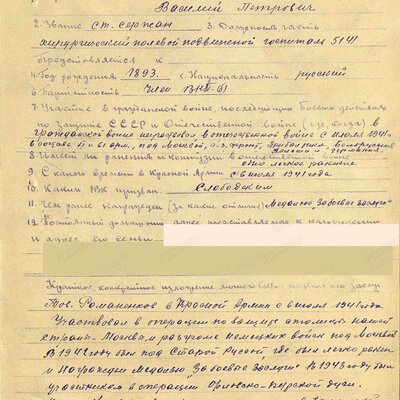 Василий Петрович
2. Звание ст. сержан 3. Должность часть
хирургический полевой подвижной госпиталь 5141
представляется к
4. Год рождения 1893. 5. Национальность русский
6. Партийность член ВКП(б)
7. Участие в гражданской войне, последующих боевых действиях
по защите СССР и Отечественной войне (где, когда) в
гражданской войне не участвовал в отечественной войне с июля 1941г
в составе и 61 арм., под Москвой,
8. Имеет ли ранения и контузии в отечественной войне
одно легкое ранение
9. С какого времени в Красной Армии с июля 1941 года
10. Каким РВК призван. Слободским
11. Чем ранее награжден (за какие отличия) Медалью „За боевые заслуги"
12. Постоянный домашний адрес представляемого к награждению
и адрес его семьи.
Краткое, конкретное изложение личного боевого подвига или заслуг
Тов. Романенков в Красной Армии с июля 1941 года
Участвовал в операции по защите столицы нашей
страны - Москвы и разгроме немецких войск под Москвой
В 1942 году был под Старой Руссой, где был легко ранен
и награжден медалью „За боевые заслуги" В 1943 году был
участником в операции Орловско-Курской дуги.